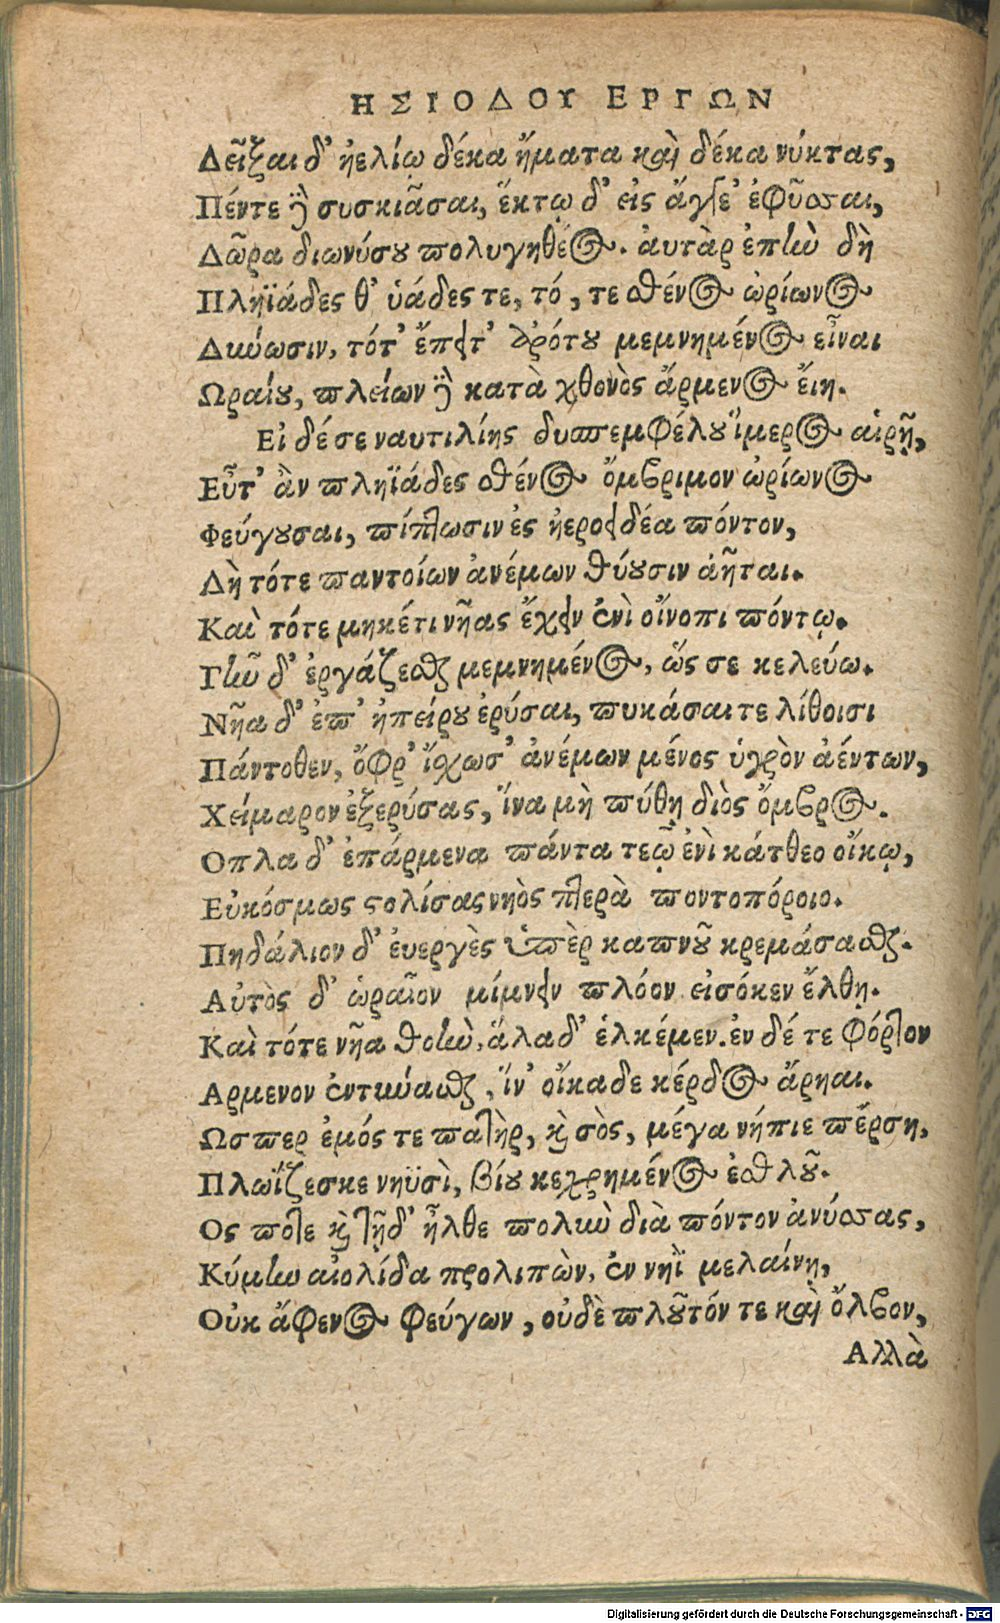 ΗΣΙΟΔΟΥ ΕΡΓΩΝ
Δεῖξαι δ' ἠελίῳ δέκα ἤματα καὶ δέκα νύκτας,
Πέντε δὲ συσκιᾶσαι, ἕκτῳ δ' εἰς ἄγγε' ἀφύσσαι,
Δῶρα διωνύσου πολυγηθέος. ἀυτὰρ ἐπὴν δὴ
Πληϊάδες θ' ὑάδες τε, τό, τε σθένος ὠρίωνος
Δύνωσιν, τότ' ἔπειτ' ἀρότου μεμνημένος εἶναι
Ωραίου, πλείων δὲ κατὰ χθονὸς ἄρμενος ἔιη.
Εἰ δέ σε ναυτιλίης δυσπεμφέλου ἵμερος αἱρῇ,
Εὖτ' ἂν πληϊάδες σθένος ὄμβριμον ὠρίωνος
Φεύγουσαι, πίπτωσιν ἐς ἠεροειδέα πόντον,
Δὴ τότε παντοίων ἀνέμων θύουσιν ἀῆται.
Καὶ τότε μηκέτι νῆας ἔχειν ἐνὶ οἴνοπι πόντῳ.
Γῆν δ' ἐργάζεσθαι μεμνημένος, ὥς σε κελεύω.
Νῆα δ' ἐπ' ἠπείρου ἐρύσαι, πυκάσαι τε λίθοισι
Πάντοθεν, ὄφρ' ἴσχωσ' ἀνέμων μένος ὑγρὸν ἀέντων,
Χείμαρον ἐξερύσας, ἵνα μὴ πύθῃ διὸς ὄμβρος.
Οπλα δ' ἐπάρμενα πάντα τεῷ ἐνὶ κάτθεο οἴκῳ,
Εὐκόσμως στολίσας νηὸς πτερὰ ποντοπόροιο.
Πηδάλιον δ' ἐυεργὲς ὑπὲρ καπνοῦ κρεμάσασθαι.
Αὐτὸς δ' ὡραῖον μίμνειν πλόον εἰσόκεν ἔλθῃ.
Καὶ τότε νῆα θοὴν, ἅλα δ' ἑλκέμεν. ἐν δέ τε φόρτον
Αρμενον ἐντύνασθαι, ἵν' οἴκαδε κέρδος ἄρηαι.
Ωσπερ ἐμός τε πατὴρ, καὶ σὸς, μέγα νήπιε πέρση,
Πλωΐζεσκε νηϋσὶ, βίου κεχρημένος ἐσθλοῦ.
Ος ποτε καὶ τῇδ' ἦλθε πολὺν διὰ πόντον ἀνύσσας,
Κύμην αἰολίδα προλιπὼν, ἐν νηῒ μελαίνῃ,
Οὐκ ἄφενος φεύγων, οὐδὲ πλοῦτόν τε καὶ ὄλβον,
Αλλὰ
Digitalisierung gefördert durch die Deutsche Forschungsgemeinschaft - DFG